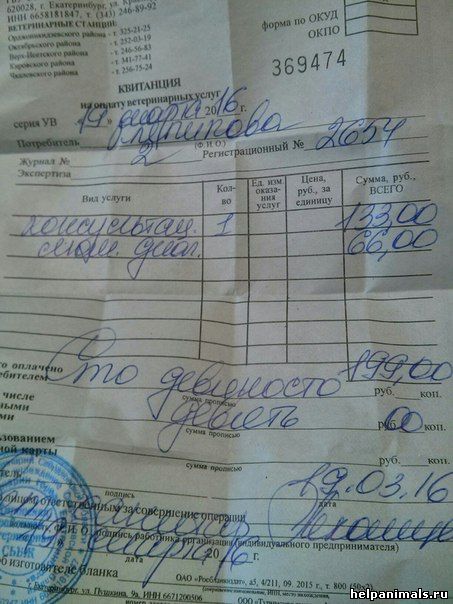 620028, г. Екатеринбург, ул.
ИНН 6658181847, т. (343) 246-89-92
ВЕТЕРИНАРНЫЕ СТАНЦИИ:
Орджоникидзевского района - т. 325-21-25
Октябрьского района - т. 252-03-19
Верх-Исетского района - т. 246-56-83
Кировского района - т. 341-77-41
Чкаловского района - т. 256-75-24
форма по ОКУД
ОКПО
369474
КВИТАНЦИЯ
на оплату ветеринарных услуг
серия УВ «19» марта 2016 г.
Потребитель
(Ф.И.О.)
Журнал № 2 Регистрационный № 2654
Экспертиза
Вид услуги Кол-во Ед. изм. оказания услуг Цена, руб., за единицу Сумма, руб., ВСЕГО
консультац. 1 133,00
66,00
оплачено 199,00
Сто девяносто руб. коп.
сумма прописью
числе девять руб. 00 коп.
сумма прописью
руб. коп.
карты
сумма прописью
19.03.16
подпись дата
лицом, ответственным за совершение операции
подпись работника организации (индивидуального предпринимателя)
марта 2016 г.
дата
об изготовителе бланка
ОАО , а5, 4/211, 09. 2015 г., т. 800 (50x2)
г. Екатеринбург, ул. Пушкина, 9а, ИНН 6671200506
helpanimals.ru